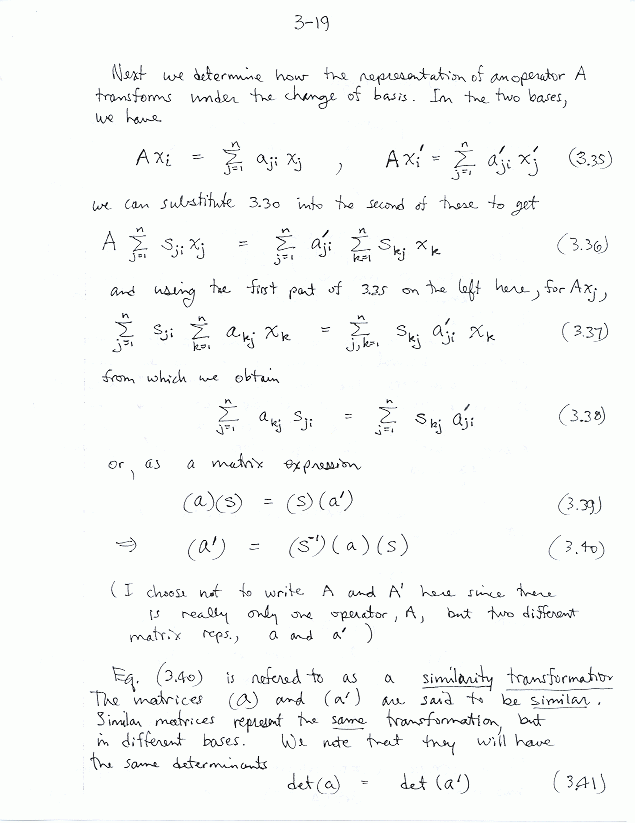 3-19
Next we determine how the representation of an operator A
transforms under the change of basis. In the two bases,
we have
A xᵢ = Σⁿⱼ₌₁ aⱼᵢ xⱼ , A xᵢ′ = Σⁿⱼ₌₁ a′ⱼᵢ x′ⱼ (3.35)
we can substitute 3.30 into the second of these to get
A Σⁿⱼ₌₁ sⱼᵢ xⱼ = Σⁿⱼ₌₁ a′ⱼᵢ Σⁿₖ₌₁ sₖⱼ xₖ (3.36)
and using the first part of 3.35 on the left here, for Axⱼ,
Σⁿⱼ₌₁ sⱼᵢ Σⁿₖ₌₁ aₖⱼ xₖ = Σⁿⱼ,ₖ₌₁ sₖⱼ a′ⱼᵢ xₖ (3.37)
from which we obtain
Σⁿⱼ₌₁ aₖⱼ sⱼᵢ = Σⁿⱼ₌₁ sₖⱼ a′ⱼᵢ (3.38)
or, as a matrix expression
(a)(s) = (s)(a′) (3.39)
⇒ (a′) = (s⁻¹)(a)(s) (3.40)
(I choose not to write A and A′ here since there
is really only one operator, A, but two different
matrix reps., a and a′)
Eq. (3.40) is refered to as a similarity transformation
The matrices (a) and (a′) are said to be similar.
Similar matrices represent the same transformation, but
in different bases. We note that they will have
the same determinants
det(a) = det(a′) (3.41)